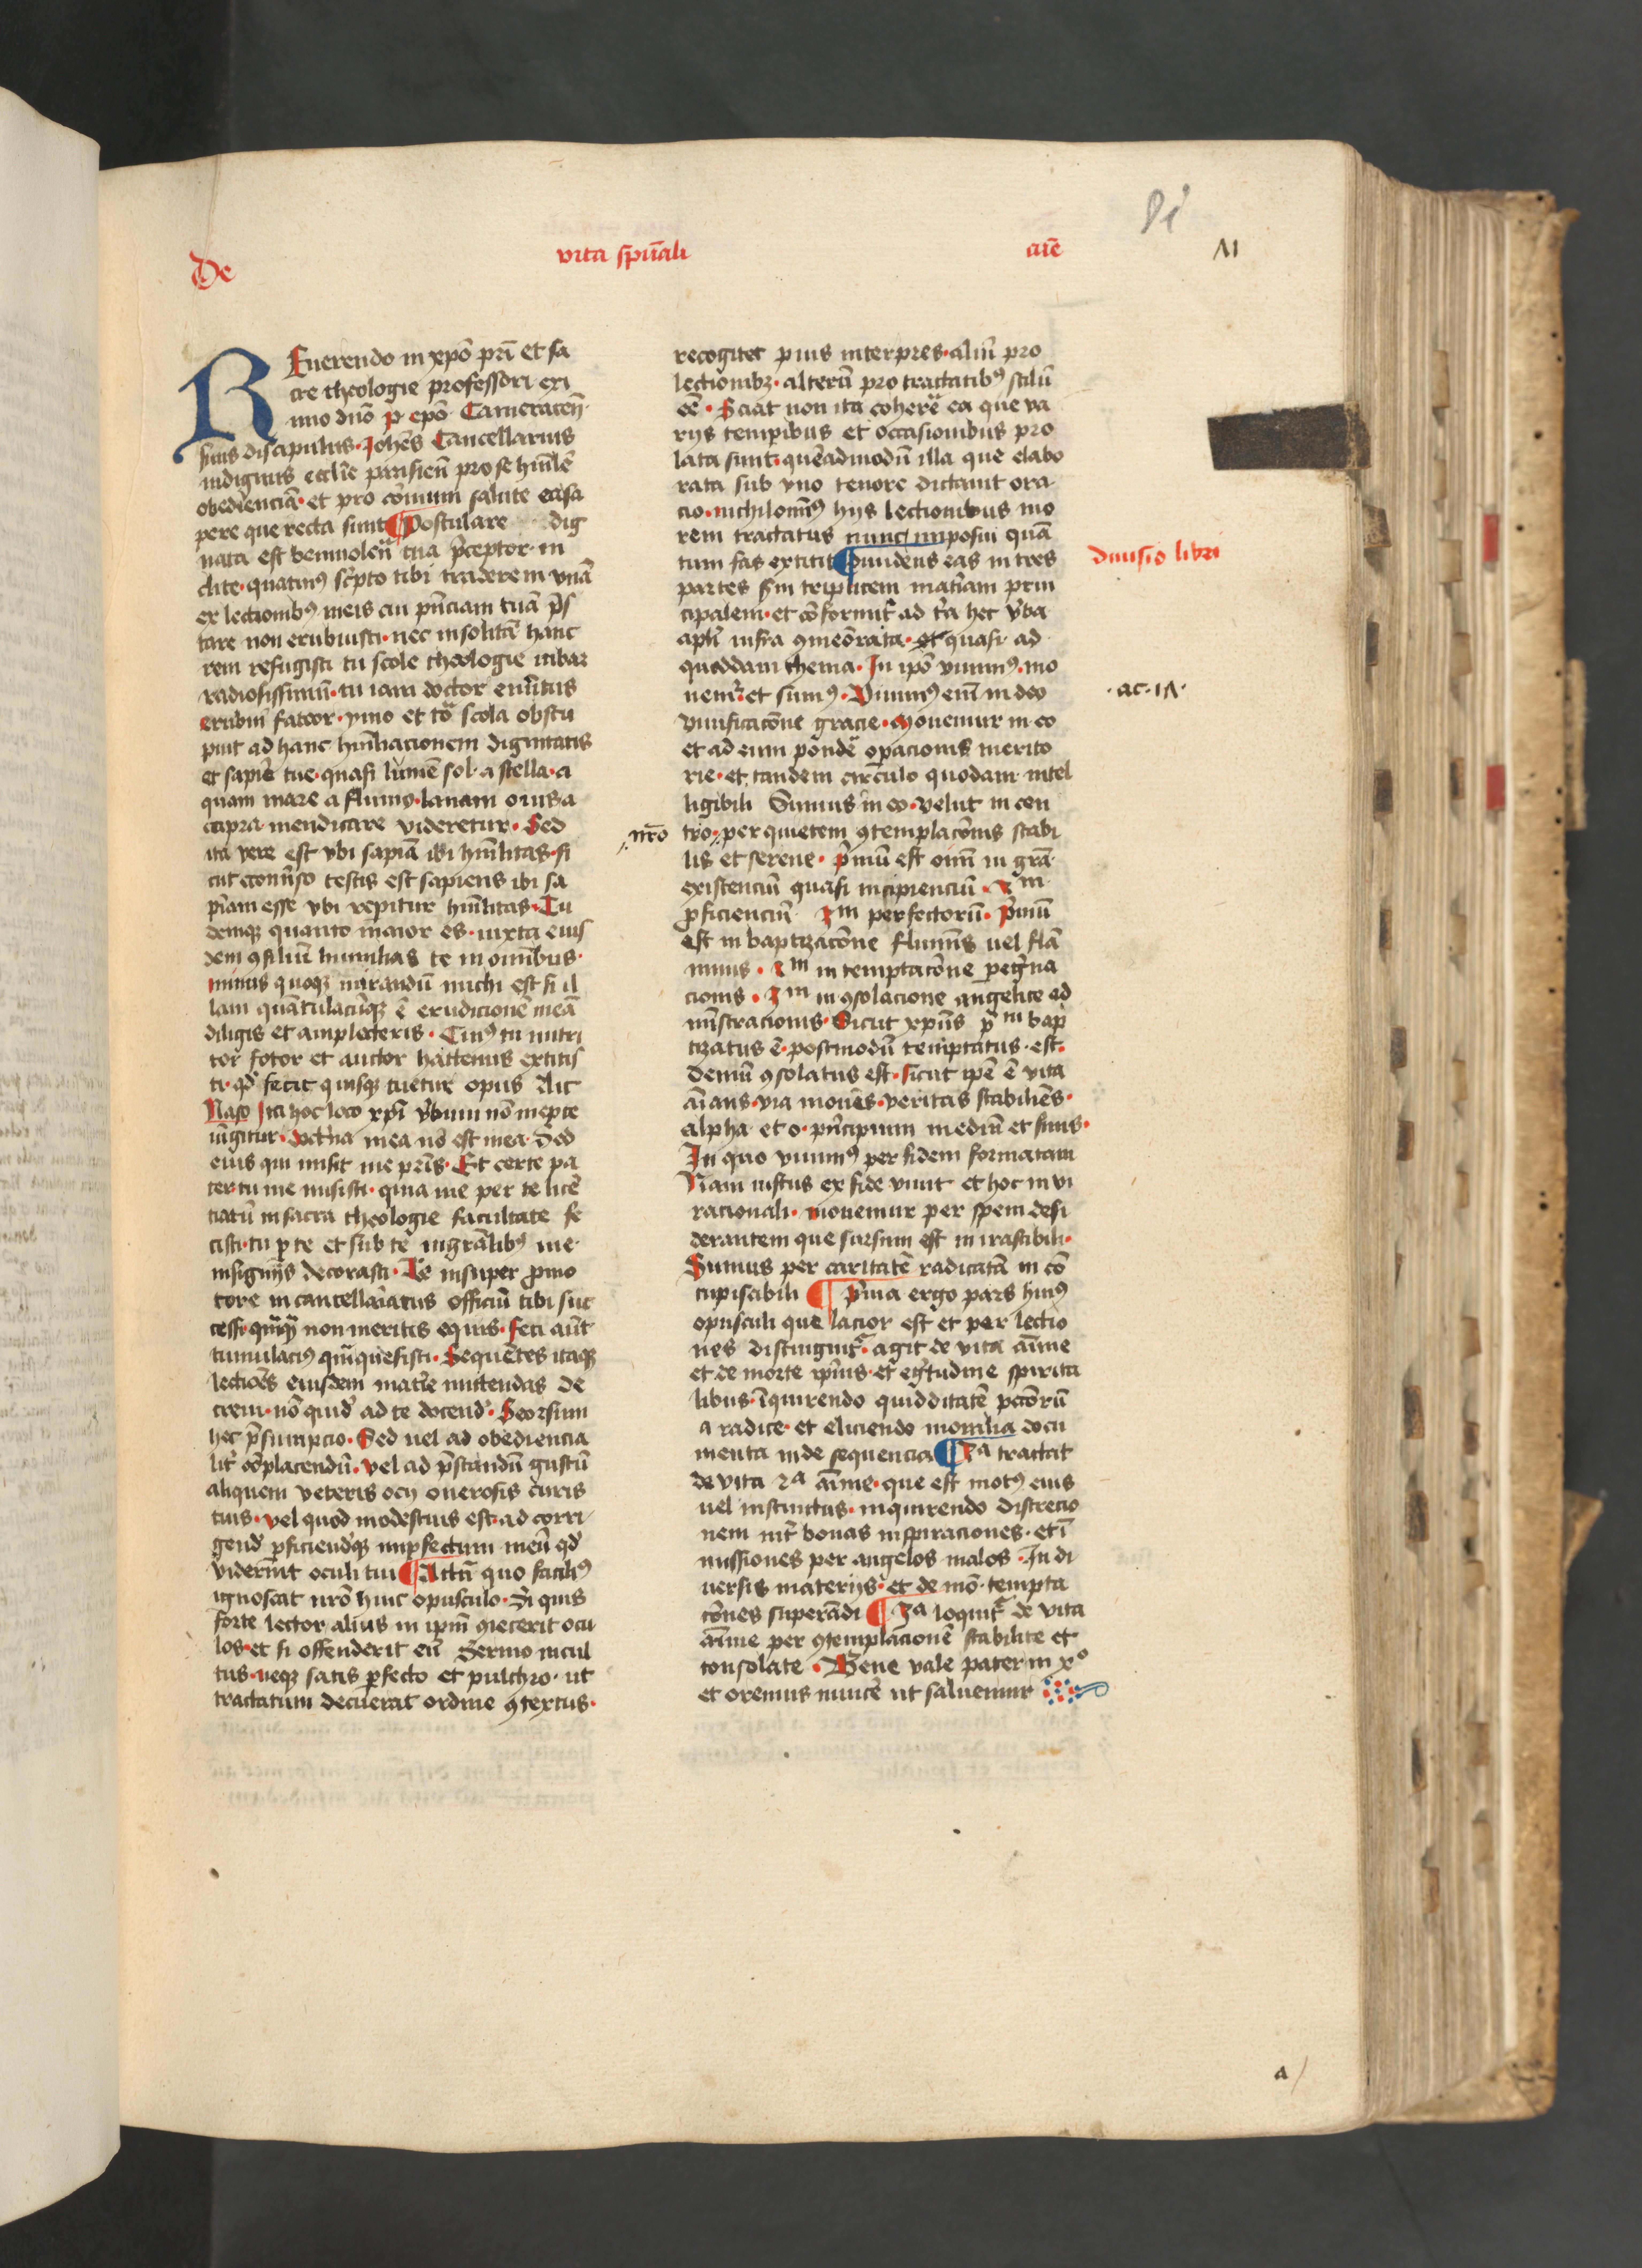 De vita spūali aīe
VI
REuerendo in xpō prī et sa
cre theologie professori exi
mio dnō p epō Cameracen̄
suus discipulus Johēs Cancellarius
indignus ecclīe parisien̄ pro se hūilē
obediencia et pro cōmuni salute ea sa
pere que recta sunt ¶ Postulare dig
nata est beniuolen̄ tua p̄ceptor in
clite quatinꝰ sc̄pto tibi traderem vnā
ex lectionibꝰ meis cui pn̄ciam tuā p̄s
tare non erubuisti nec insolitā hanc
rem refugisti tu scole theologie iubar
radiosissimū tu iam doctor em̄itus
erubui fateor ymo et tō scola obstu
puit ad hanc hūiliacionem dignitatis
et sapiē tue quasi lumē sol a stella a
quam mare a flumo lanam ouis a
capra mendicare videretur Sed
ita vere est vbi sapīa ibi hūilitas si
cut econūso testis est sapiens ibi sa
pīam esse vbi repitur hūilitas Tu
demqꝫ quanto maior es iuxta eius
dem ꝯsiliū humilias te in omībus
minus quoqꝫ mirandū michi est si il
lam quātulacūqꝫ ē erudicionē meā
diligis et amplecteris Cuiꝰ tu nutri
tor fotor et auctor hactenus extitis
ti qd̄ fecit quisqꝫ tuetur opus Ait
Naso Ita hoc loco xpī v̄bum nō inepte
iūgitur doctīna mea nō est mea Sed
eius qui misit me prīs Et certe pa
ter tu me misisti quia me per te licē
tiatū in sacra theologie facultate fe
cisti tu p te et sub te mgrālibꝰ me
insignijs decorasti Te insuper pmo
tore in cancellariatus officiū tibi suc
cessi qūqꝫ non meritis equis feci aūt
tumulaciꝰ qm̄quesisti Sequētes itaqꝫ
lectiōes eiusdem matīe mittendas de
creui nō quid ad te docend Seorsum
hec p̄sumpcio Sed uel ad obediencia
lit̄ cōplacendū vel ad p̄standū gustū
aliquem veteris ocij onerosis curis
tuis vel quod modestius est ad corri
gend pficiendqꝫ impfectum meū qd̄
viderīnt oculi tui ¶ Attn̄ quo faciliꝰ
ignoscat nrō huic opusculo Si quis
forte lector alius in ipm̄ ꝯiecerit ocu
los et si offenderit eū Sermo incul
tus neqꝫ satis pfecto et pulchro ut
tractatum decuerat ordine ꝯtextus
recogitet pius interpres aliū pro
lectionibꝫ alterū pro tractatibꝰ stilū
eē Sciat non ita coherē ea que va
rijs temporibus et occasionibus pro
lata sunt quēadmodū illa que elabo
rata sub vno tenore dictauit ora
cio nichilominꝰ hijs lectionibus mo
rem tractatus nunc imposui quā
tum fas extitit ¶ Diuidens eas in tres
partes sm̄ triplicem matīam prin
cipalem et cōformit̄ ad t̄a hec v̄ba
aplī infra ꝯmeōrata et quasi ad
quoddam thema In ipō viuimꝰ mo
uemꝰ et sumꝰ Viuimꝰ enī in deo
viuificacōne gracie Mouemur in eo
et ad eum pondē opacionis merito
rie et tandem circulo quodam intel
ligibili Sumus in eo velut in cen
tro per quietem ꝯtemplacōnis stabi
lis et serene p̄mū est oīm in grā
existenciū quasi incipienciū 2m
pficienciū 3m perfectorū p̄mū
est in baptizacōne flumīs uel flā
minis 2m in temptacōne peḡna
cionis 3m in ꝯsolacione angelice ad
mīstracionis Sicut xpūs pm bap
tizatus ē postmodū temptatus est
demū ꝯsolatus est sicut ipē ē vita
aīans via mouēs veritas stabiliēs
alpha et o pn̄cipium mediū et finis
In quo viuimꝰ per fidem formatam
Nam iustus ex fide viuit et hoc in vi
racionali mouemur per spem desi
derantem que sursum est in irascibili
Sumus per caritatē radicatā in cō
cupiscibili ¶ p̄ma ergo pars huiꝰ
opusculi que lacior est et per lectio
nes distinguit̄ agit de vita aīme
et de morte ipīus et eḡtudine spirita
libus īquirendo quidditatē pctōrū
a radice et eliciendo momilia docu
menta inde sequencia ¶ 2a tractat
de vita 2a aīme que est motꝰ eius
uel instinctus inquirendo discrecio
nem int̄ bonas inspiraciones et ī
missiones per angelos malos In di
uersis materijs et de mō tempta
cōnes superādi ¶ 3a loquit̄ de vita
aīme per ꝯtemplacionē stabilite et
consolate Bene vale pater in xo
et oremus inuicē ut saluemur
diuisio libri
·ac·17·
nrō
a